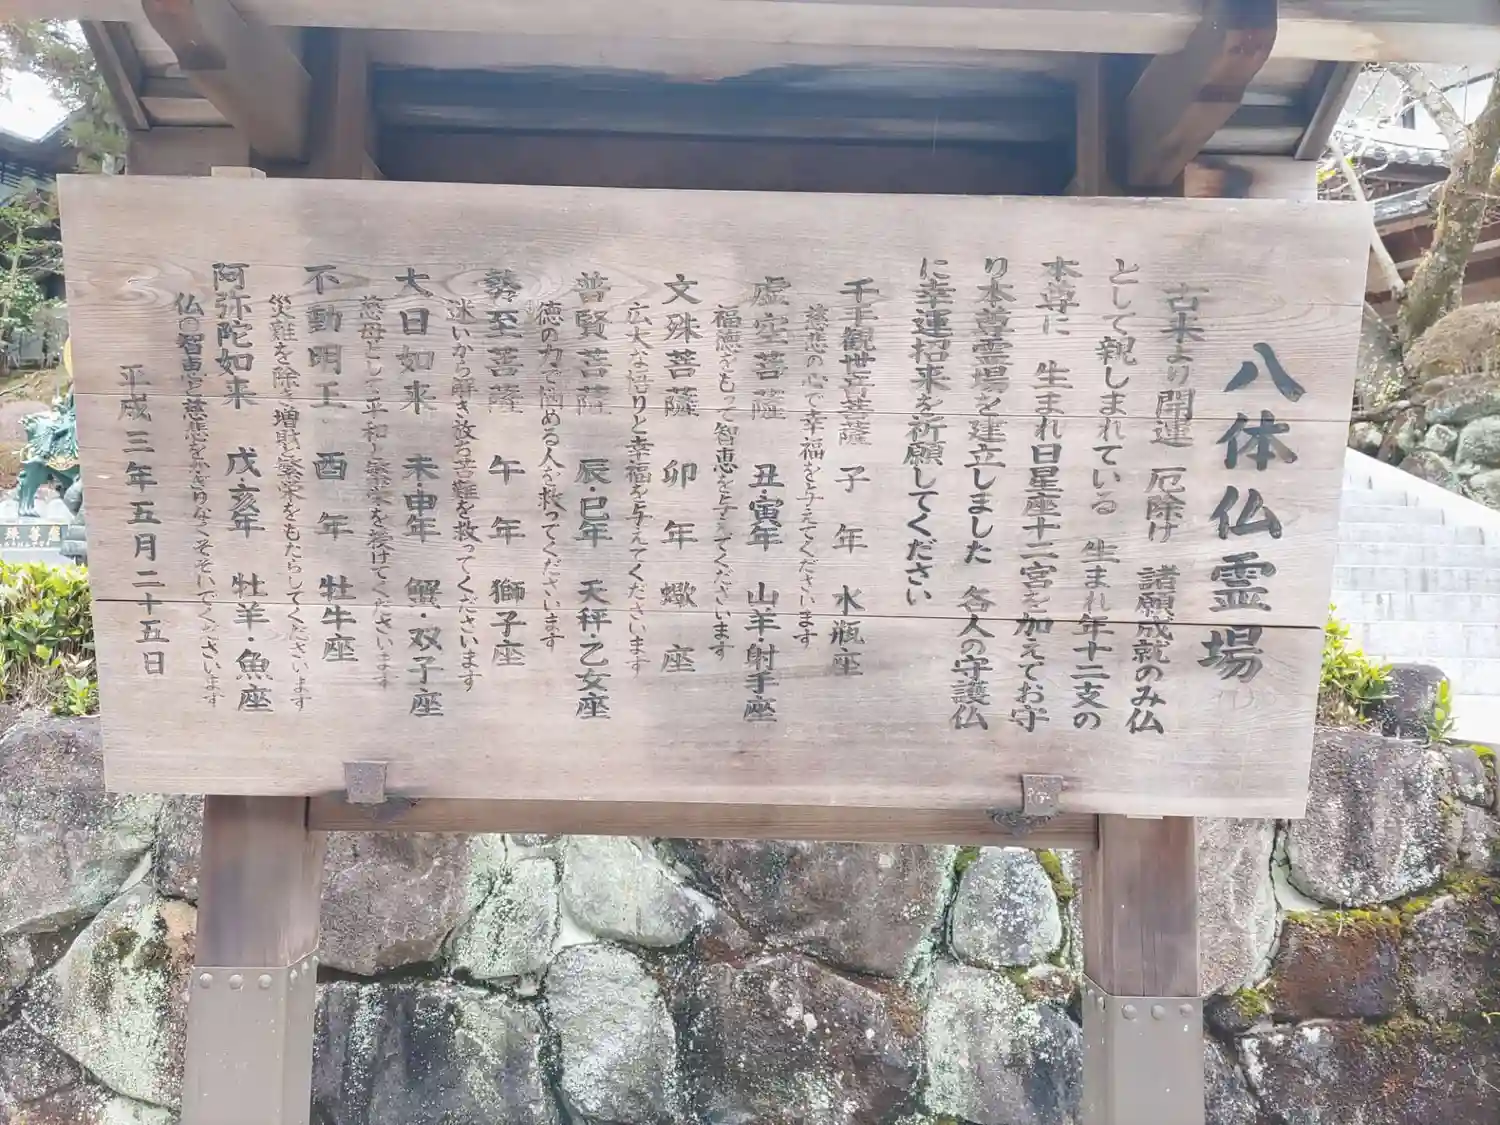 八体仏霊場
古来より開運 厄除け 諸願成就のみ仏
として親しまれている 生まれ年十二支の
本尊に 生まれ日星座十二宮を加えてお守
り本尊霊場を建立しました 各人の守護仏
に幸運招来を祈願してください
千手観世音菩薩 子年 水瓶座
慈悲の心で幸福を与えてくださいます
虚空菩薩 丑・寅年 山羊・射手座
福徳をもって智恵を与えてくださいます
文殊菩薩 卯年 蠍座
広大な悟りと幸福を与えてくださいます
普賢菩薩 辰・巳年 天秤・乙女座
徳の力で悩める人を救ってくださいます
勢至菩薩 午年 獅子座
迷いから解き放ち苦難を救ってくださいます
大日如来 未申年 蟹・双子座
慈母として平和と繁栄を授けてくださいます
不動明王 酉年 牡牛座
災難を除き増財と繁栄をもたらしてくださいます
阿弥陀如来 戌・亥年 牡羊・魚座
仏の智恵と慈悲をかぎりなくそそいでくださいます
平成三年五月二十五日